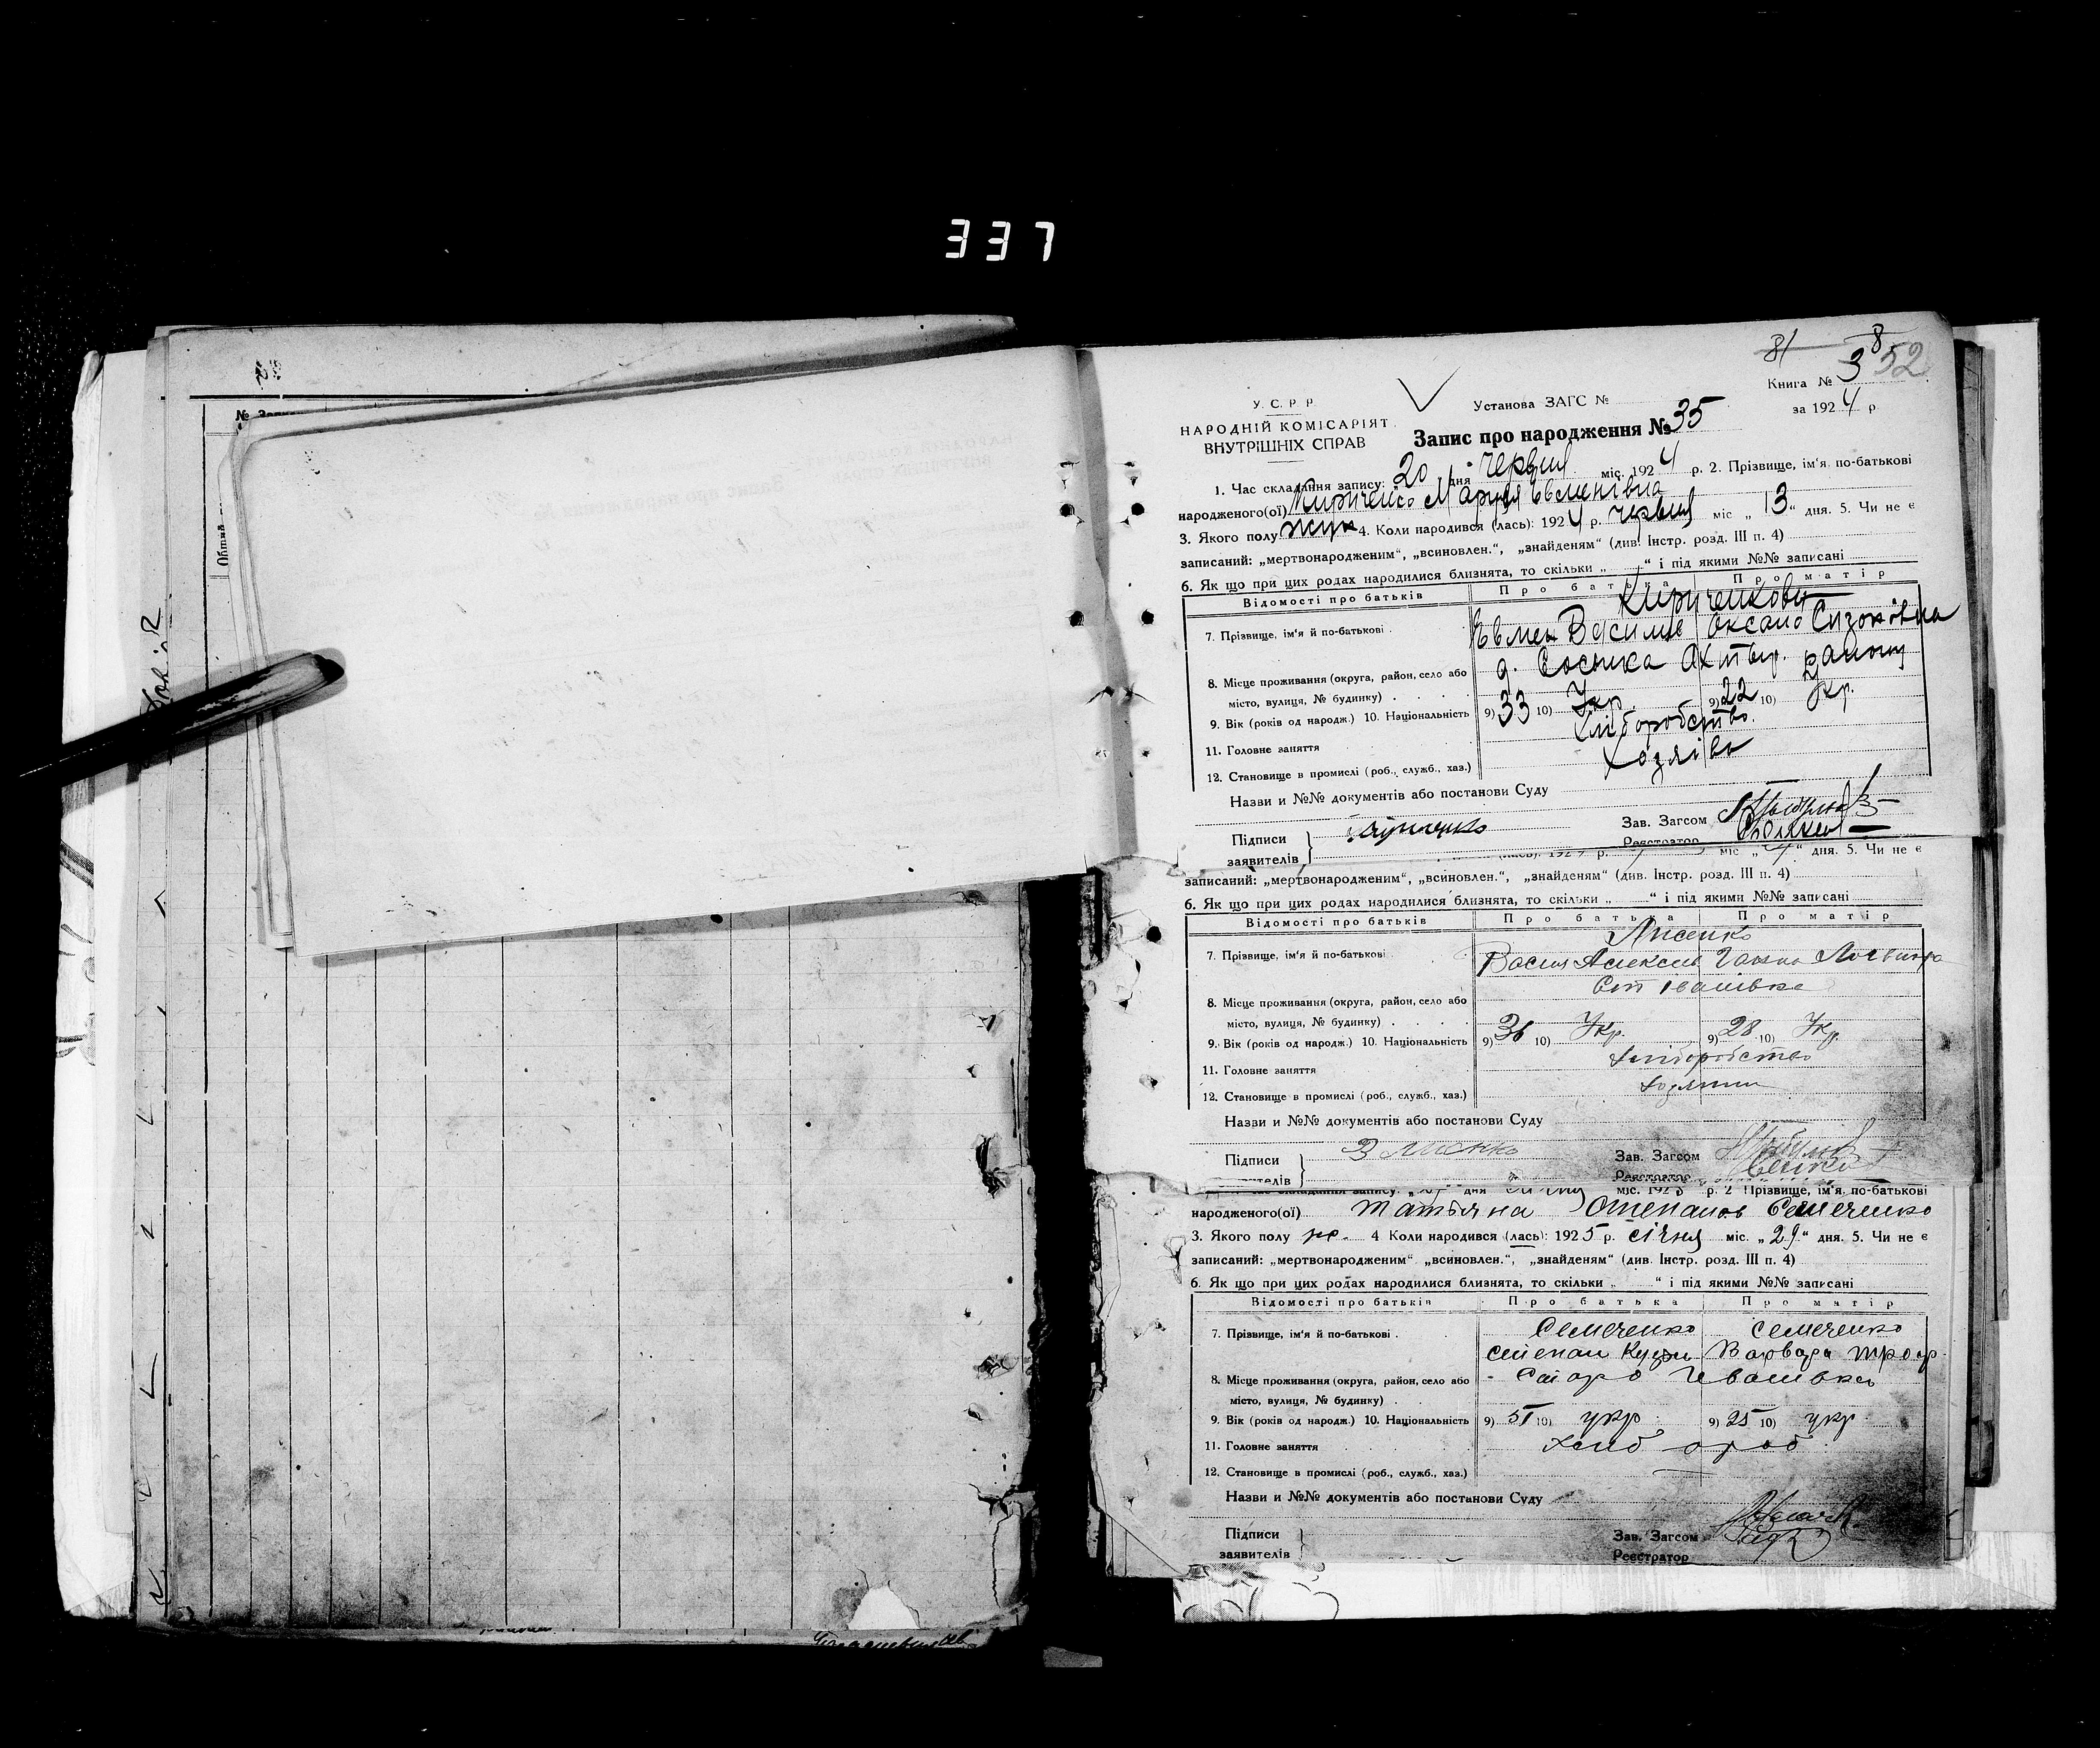 337
8
81 3 52
Книга № 3
У. С. Р. Р.
Установа ЗАГС №
за 1924 р
НАРОДНІЙ КОМІСАРІЯТ
ВНУТРІШНІХ СПРАВ
Запис про народження № 35
1. Час складання запису: 20 дня червня міс. 1924 р. 2. Прізвище, ім'я, по-батькові
народженого(ої) Кириченко Мария Евменівна
3. Якого полу жін 4. Коли народився (лась): 1924 р. червня міс „ 13 “ дня. 5. Чи не є
записаний: „мертвонародженим“, „всиновлен.“, „знайденям“ (див. Інстр. розд. III п. 4)
6. Як що при цих родах народилися близнята, то скільки „ “ і під якими №№ записані
Відомості про батьків Про батька Про матір
Кириченкови
7. Прізвище, ім'я й по-батькові Евмен Васильев Оксана
8. Місце проживання (округа, район, село або Сосонка Ахтыр. району
місто, вулиця, № будинку)
9. Вік (років од народж.) 10. Національність 9) 33 10) Укр. 9) 22 10) Укр.
11. Головне заняття Хліборобство.
12. Становище в промислі (роб., служб., хаз.) Хозяїва
Назви и №№ документів або постанови Суду
Підписи
Зав. Загсом
заявителів
Реєстратор
(лась): 1924 р. міс „ “ дня. 5. Чи не є
записаний: „мертвонародженим“, „всиновлен.“, „знайденям“ (див. Інстр. розд. III п. 4)
6. Як що при цих родах народилися близнята, то скільки „ “ і під якими №№ записані
Відомості про батьків Про батька Про матір
Лисенко
7. Прізвище, ім'я й по-батькові Васил Алексеев Ганна
8. Місце проживання (округа, район, село або Ст Іванівка
місто, вулиця, № будинку)
9. Вік (років од народж.) 10. Національність 9) 36 10) Укр. 9) 28 10) Укр.
11. Головне заняття хліборобство
12. Становище в промислі (роб., служб., хаз.)
Назви и №№ документів або постанови Суду
Підписи
Зав. Загсом
Реєстратор
складання запису: дня міс. 1925 р. 2 Прізвище, ім'я, по-батькові
народженого(ої) Татьяна Степанов Семеченко
3. Якого полу ж. 4 Коли народився (лась): 1925 р. січня міс. „ 29 “ дня. 5. Чи не є
записаний: „мертвонародженим“ „всиновлен.“, „знайденям“ (див. Інстр. розд. III п. 4)
6. Як що при цих родах народилися близнята, то скільки „ “ і під якими №№ записані
Відомості про батьків Про батька Про матір
7. Прізвище, ім'я й по-батькові Семеченко Семеченко
Степан Кузм Варвара Трор
8. Місце проживання (округа, район, село або Старо Івановка
місто, вулиця, № будинку)
9. Вік (років од народж.) 10. Національність 9) 51 10) укр. 9) 25 10) укр.
11. Головне заняття хліб ороб
12. Становище в промислі (роб., служб., хаз.)
Назви и №№ документів або постанови Суду
Підписи
Зав. Загсом
заявителів
Реєстратор